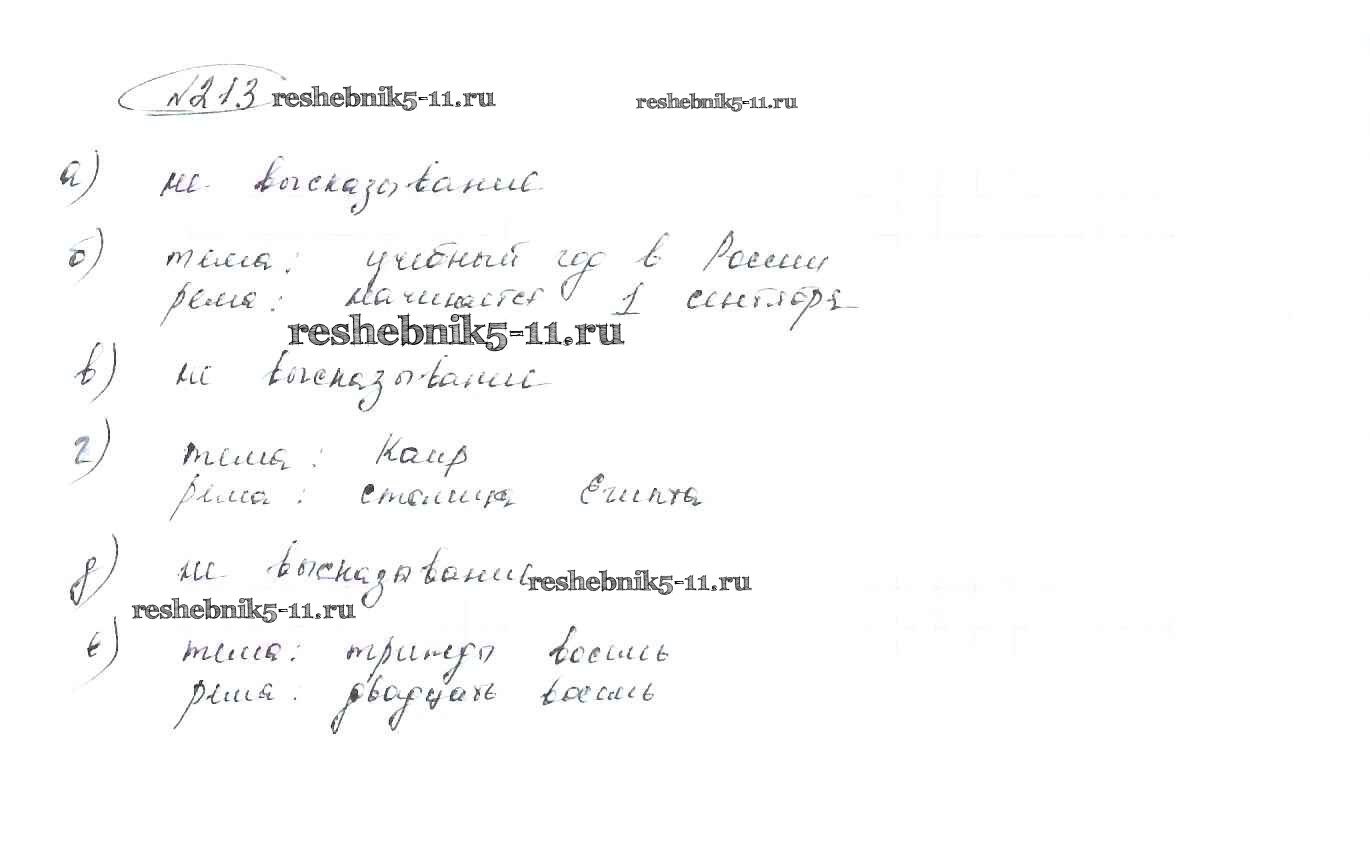 №213 reshebnik5-11.ru reshebnik5-11.ru
а) не высказывание
б) тема: учебный год в России
рема: начинается 1 сентября
reshebnik5-11.ru
в) не высказывание
г) тема: Каир
рема: столица Египта
д) не высказывание reshebnik5-11.ru
reshebnik5-11.ru
е) тема: трижды восемь
рема: двадцать восемь